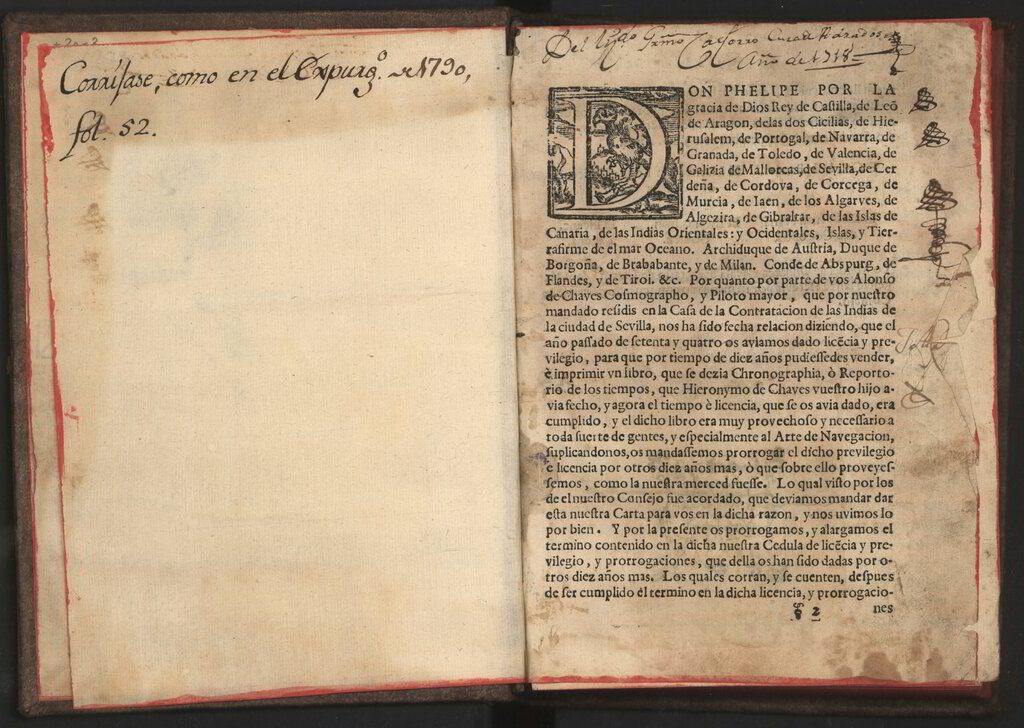 Corrijase, como en el Expurgº. de 1790,
fol. 52.
Año de 1718=
DON PHELIPE POR LA
gracia de Dios Rey de Caſtilla, de Leõ
de Aragon, delas dos Cicilias, de Hie-
ruſalem, de Portogal, de Navarra, de
Granada, de Toledo, de Valencia, de
Galizia de Mallorcas, de Sevilla, de Cer
deña, de Cordova, de Corcega, de
Murcia, de Iaen, de los Algarves, de
Algezira, de Gibraltar, de las Islas de
Canaria, de las Indias Orientales: y Ocidentales, Islas, y Tier-
rafirme de el mar Oceano. Archiduque de Auſtria, Duque de
Borgoña, de Brababante, y de Milan. Conde de Abspurg, de
Flandes, y de Tiroi. &c. Por quanto por parte de vos Alonſo
de Chaves Coſmographo, y Piloto mayor, que por nueſtro
mandado reſidis en la Caſa de la Contratacion de las Indias de
la ciudad de Sevilla, nos ha ſido fecha relacion diziendo, que el
año paſſado de ſetenta y quatro os aviamos dado licẽcia y pre-
vilegio, para que por tiempo de diez años pudieſſedes vender,
è imprimir vn libro, que ſe dezia Chronographia, ò Reporto-
rio de los tiempos, que Hieronymo de Chaves vueſtro hijo a-
via fecho, y agora el tiempo è licencia, que ſe os avia dado, era
cumplido, y el dicho libro era muy provechoſo y neceſſario a
toda ſuerte de gentes, y eſpecialmente al Arte de Navegacion,
ſuplicandonos, os mandaſſemos prorrogar el dicho previlegio
e licencia por otros diez años mas, ò que ſobre ello proveyeſ-
ſemos, como la nueſtra merced fueſſe. Lo qual viſto por los
de el nueſtro Conſejo fue acordado, que deviamos mandar dar
eſta nueſtra Carta para vos en la dicha razon, y nos uvimos lo
por bien. Y por la preſente os prorrogamos, y alargamos el
termino contenido en la dicha nueſtra Cedula de licẽcia y pre-
vilegio, y prorrogaciones, que della os han ſido dadas por o-
tros diez años mas. Los quales corran, y ſe cuenten, deſpues
de ſer cumplido el termino en la dicha licencia, y prorrogacio-
¶ 2 nes